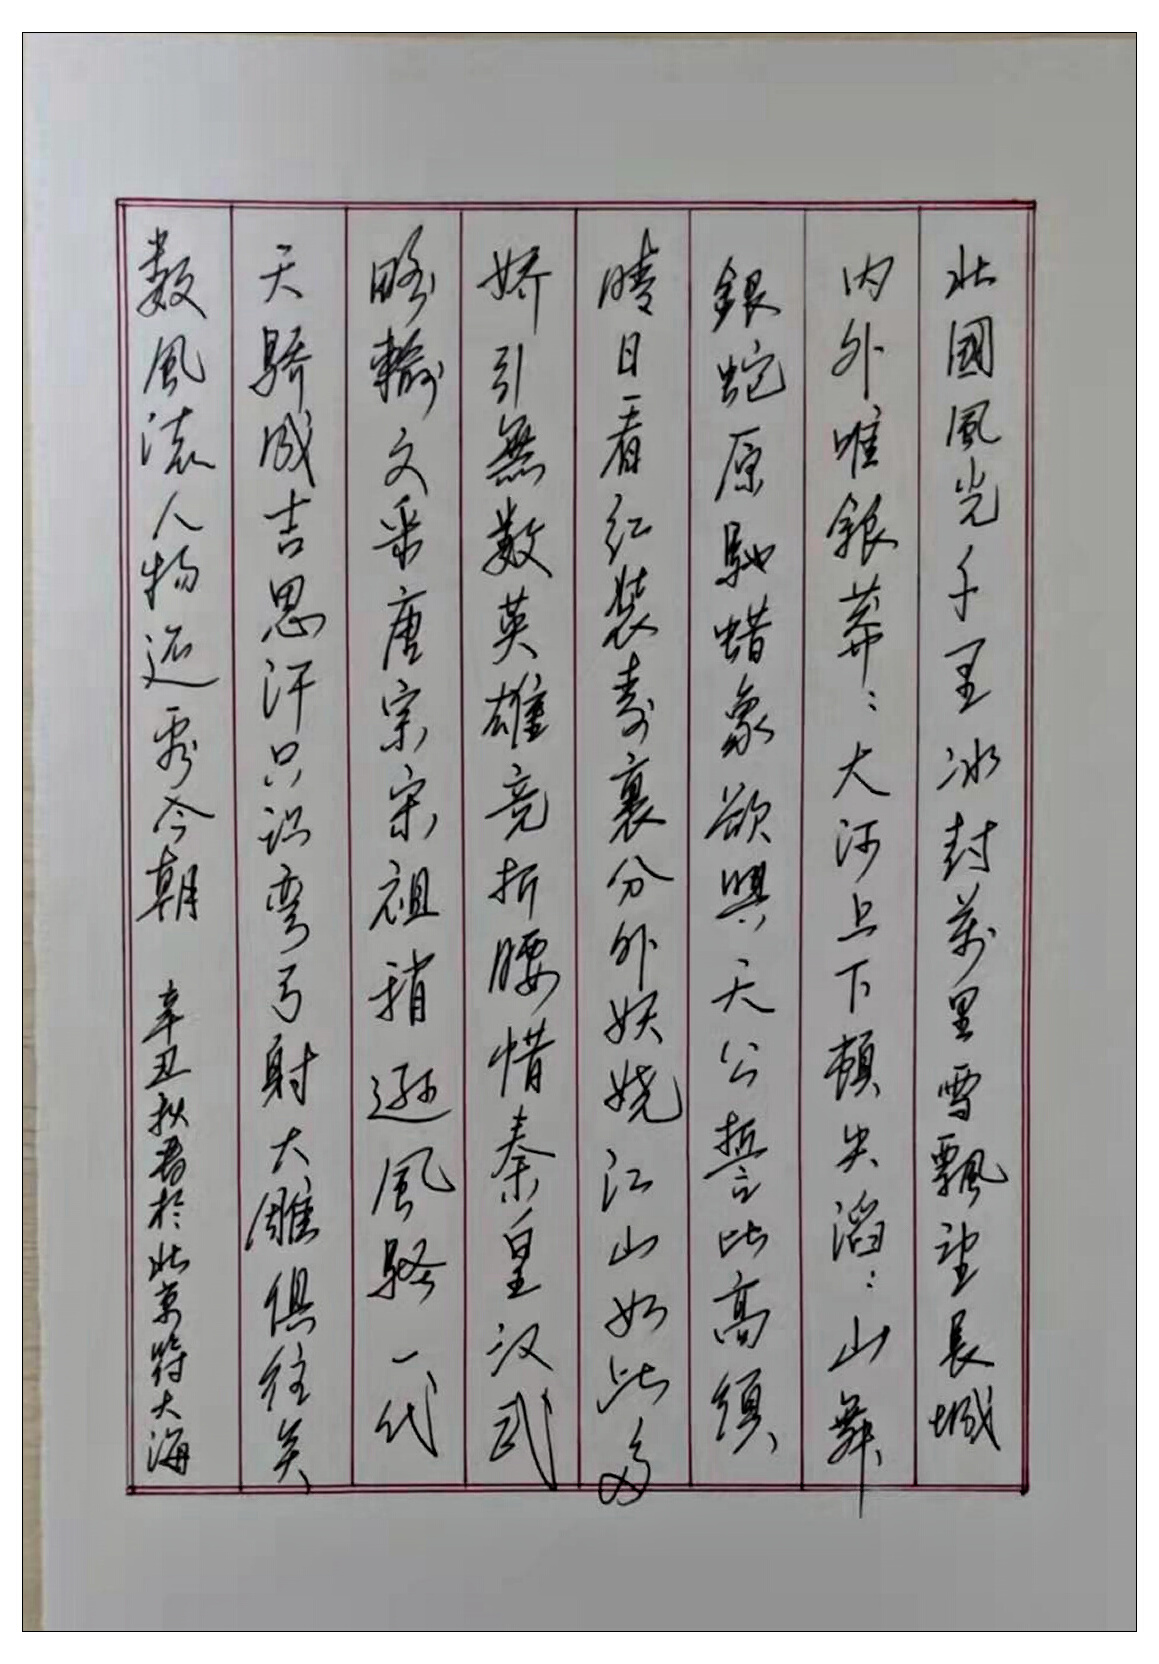 北國風光千里冰封萬里雪飄望長城
内外唯銀莽：大河上下頓失滔：山舞
銀蛇原馳蜡象欲與天公誓比高須
晴日看红装素裹分外妖娆江山如此多
娇引無數英雄竞折腰惜秦皇汉武
略輸文采唐宗宋祖稍遜風騷一代
天骄成吉思汗只识弯弓射大雕俱往矣
数風流人物还看今朝 辛丑秋書於北京符大海